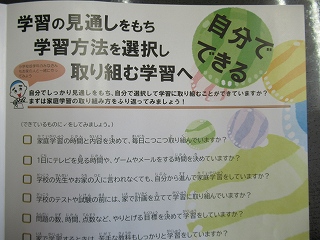 学習の見通しをもち
学習方法を選択し
取り組む学習へ
自分で
できる
自分でしっかり見通しをもち、自分で選択して学習に取り組むことができていますか?
まずは家庭学習の取り組み方をふり返ってみましょう!
(できているものに✓をしてみましょう。)
家庭学習の時間と内容を決めて、毎日こつこつ取り組んでいますか?
1日にテレビを見る時間や、ゲームやメールをする時間を決めていますか?
学校の先生やお家の人に言われなくても、自分から進んで家庭学習をしていますか?
学校のテストや試験の前には、家で計画を立てて学習に取り組んでいますか?
問題の数、時間、点数など、やりとげる目標を決めて学習をしていますか?